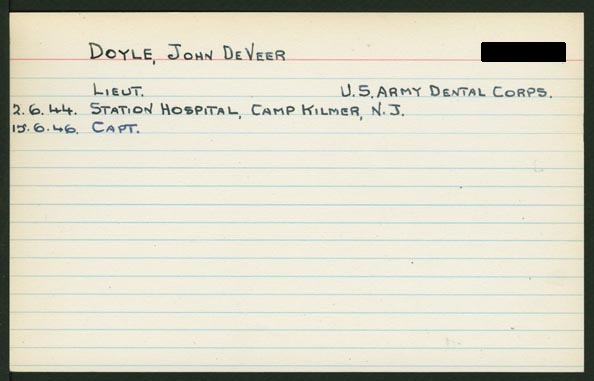 Doyle, John DeVeer
Lieut. U.S. Army Dental Corps.
2.6.44. Station Hospital, Camp Kilmer, N.J.
15.6.46. Capt.